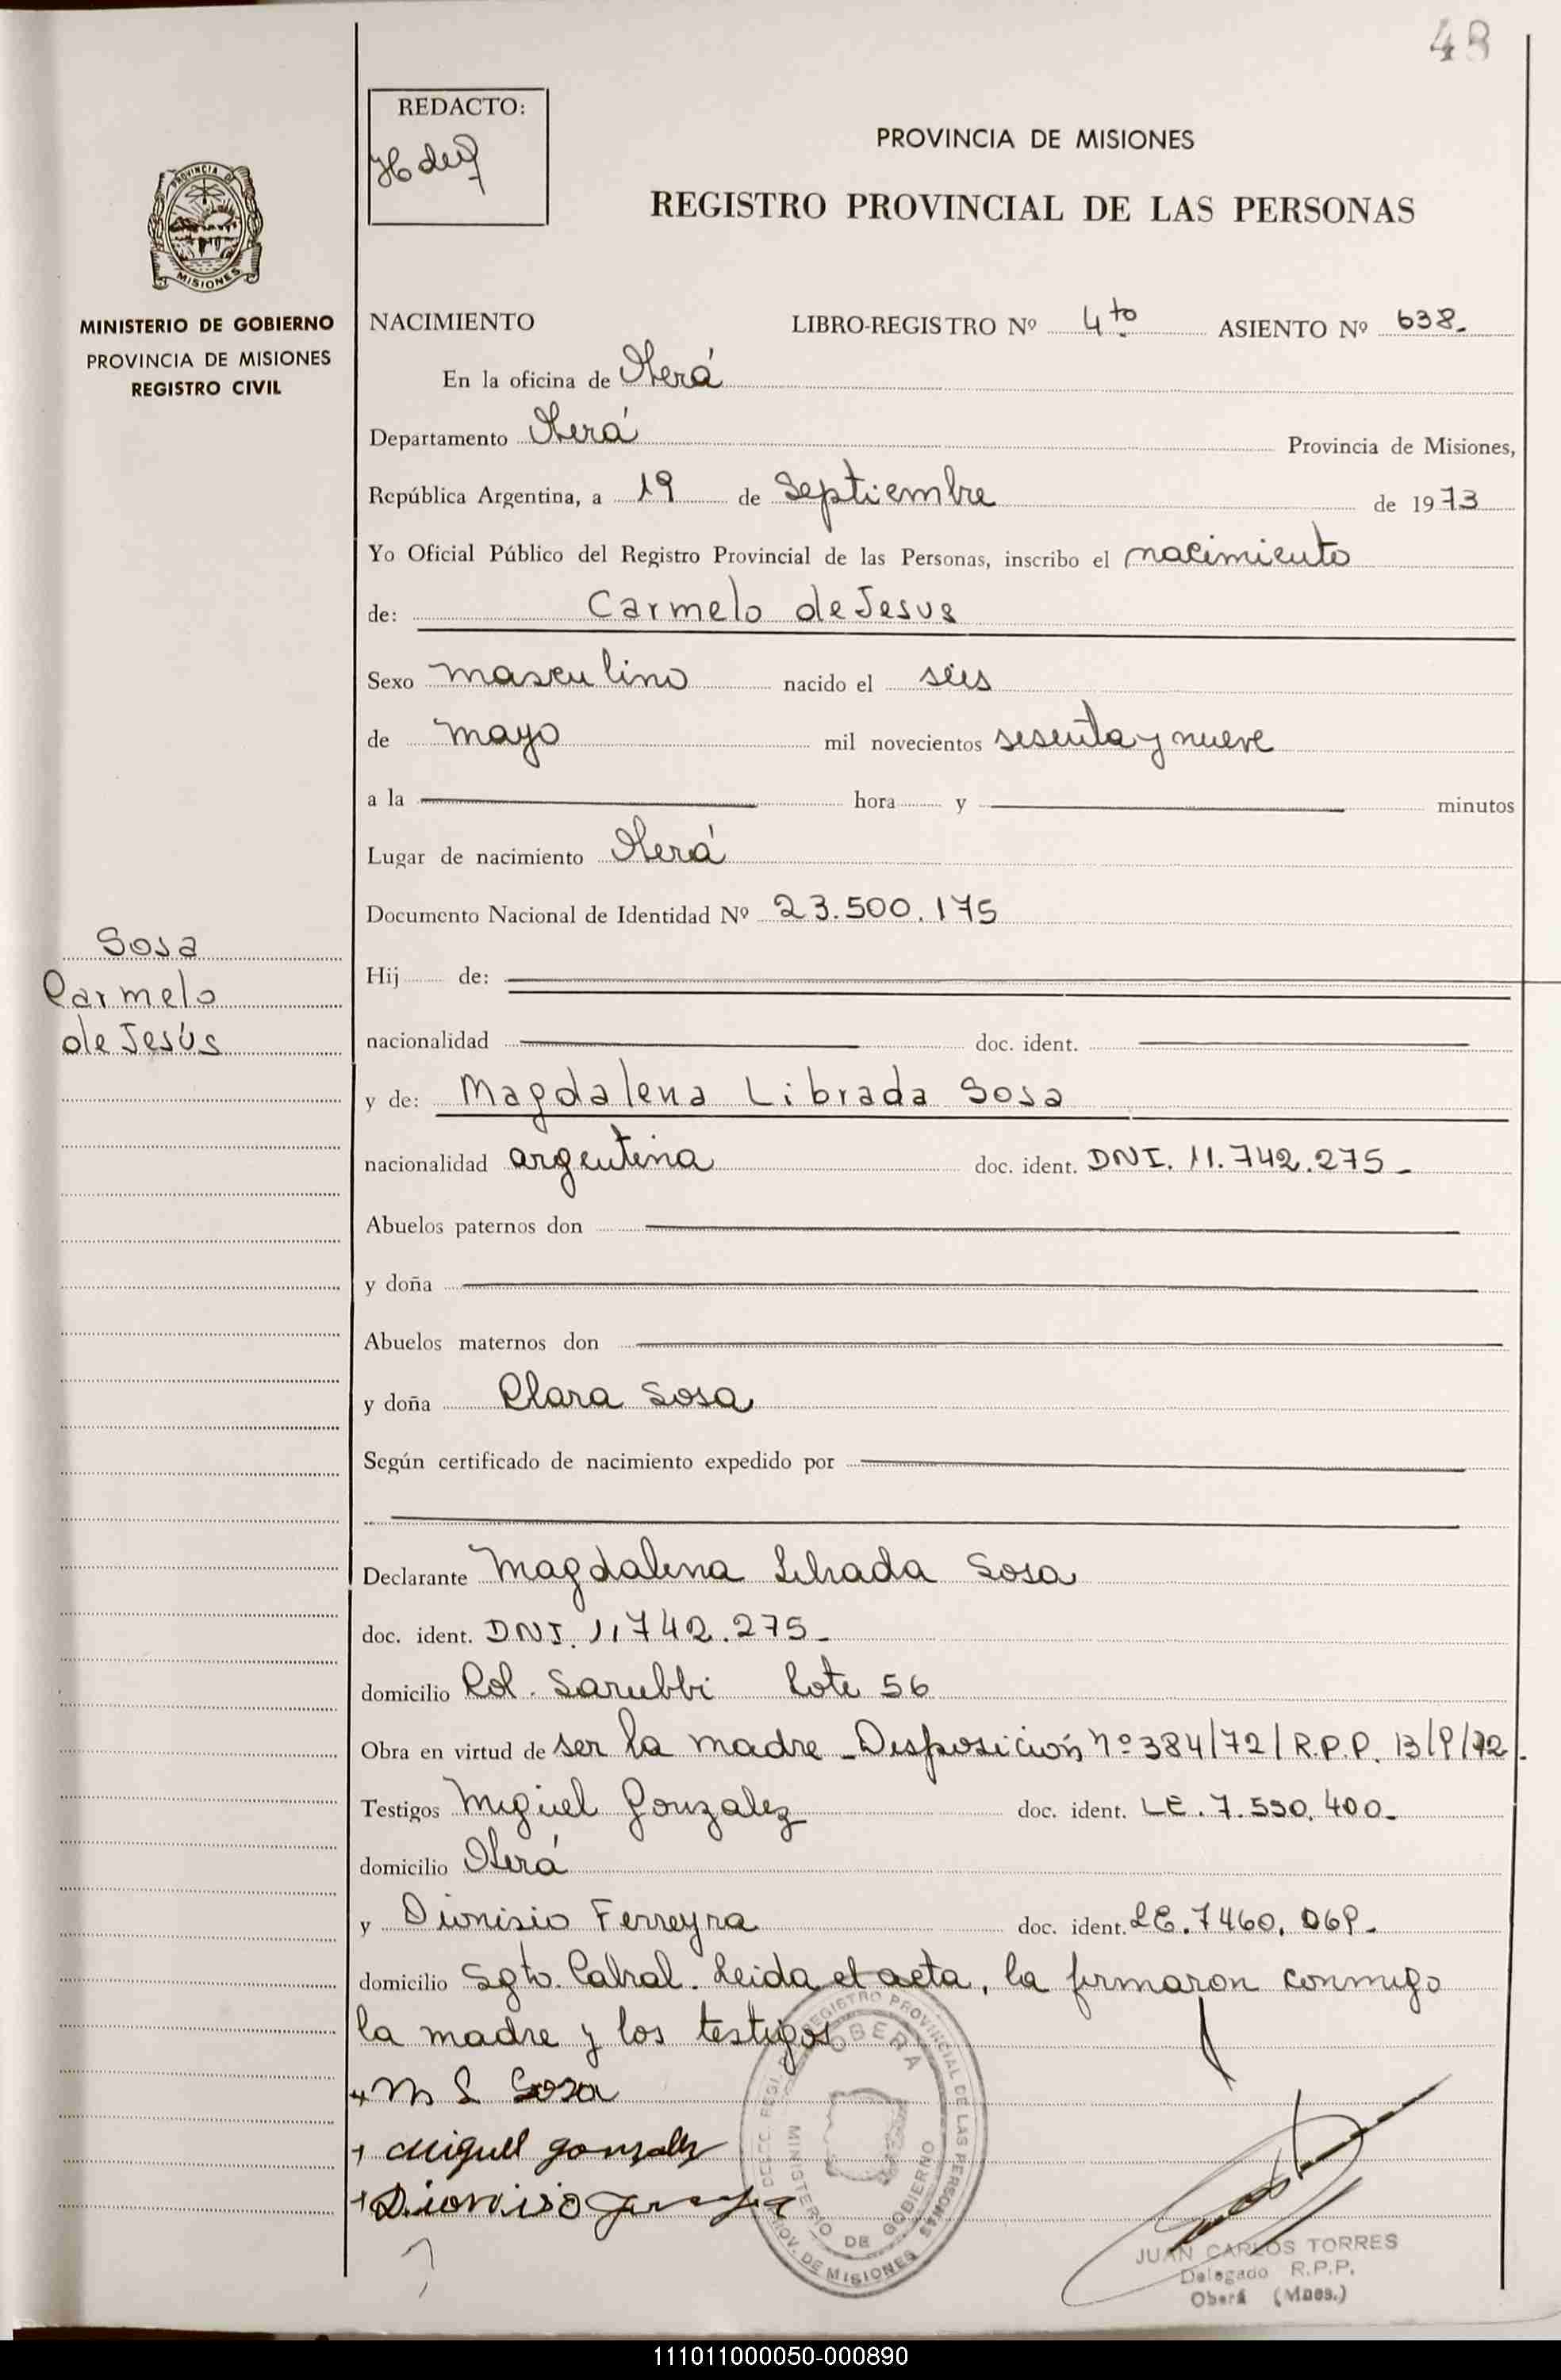 48
REDACTO:
PROVINCIA DE MISIONES
REGISTRO PROVINCIAL DE LAS PERSONAS
PROVINCIA DE
MISIONES
MINISTERIO DE GOBIERNO
PROVINCIA DE MISIONES
REGISTRO CIVIL
NACIMIENTO LIBRO-REGISTRO Nº 4to ASIENTO Nº 638.
En la oficina de Oberá
Departamento Oberá Provincia de Misiones,
República Argentina, a 19 de Septiembre de 1973
Yo Oficial Público del Registro Provincial de las Personas, inscribo el nacimiento
de: Carmelo de Jesus
Sexo masculino nacido el seis
de mayo mil novecientos sesenta y nueve
a la hora y minutos
Lugar de nacimiento Oberá
Documento Nacional de Identidad Nº 23.500.175
Sosa
Carmelo
de Jesús
Hij de:
nacionalidad doc. ident.
y de: Magdalena Librada Sosa
nacionalidad argentina doc. ident. DNI. 11.742.275-
Abuelos paternos don
y doña
Abuelos maternos don
y doña Clara Sosa
Según certificado de nacimiento expedido por
Declarante Magdalena Librada Sosa
doc. ident. DNI. 11742.275-
domicilio Col. Sarubbi Lote 56
Obra en virtud de ser la madre - Disposición nº 384/72/R.P.P. 13/9/72.
Testigos Miguel Gonzalez doc. ident. LE. 7.550.400-
domicilio Oberá
y Dionisio Ferreyra doc. ident. LE. 7460.069-
domicilio Sgto. Cabral. Leida el acta, la firmaron conmigo
la madre y los testigos
M L Sosa
Miguel Gonzalez
Dionisio Ferreyra
REGISTRO PROVINCIAL DE LAS PERSONAS
OBERA
MINISTERIO DE GOBIERNO
PROV. DE MISIONES
JUAN CARLOS TORRES
Delegado R.P.P.
Oberá (Mnes.)
111011000050-000890